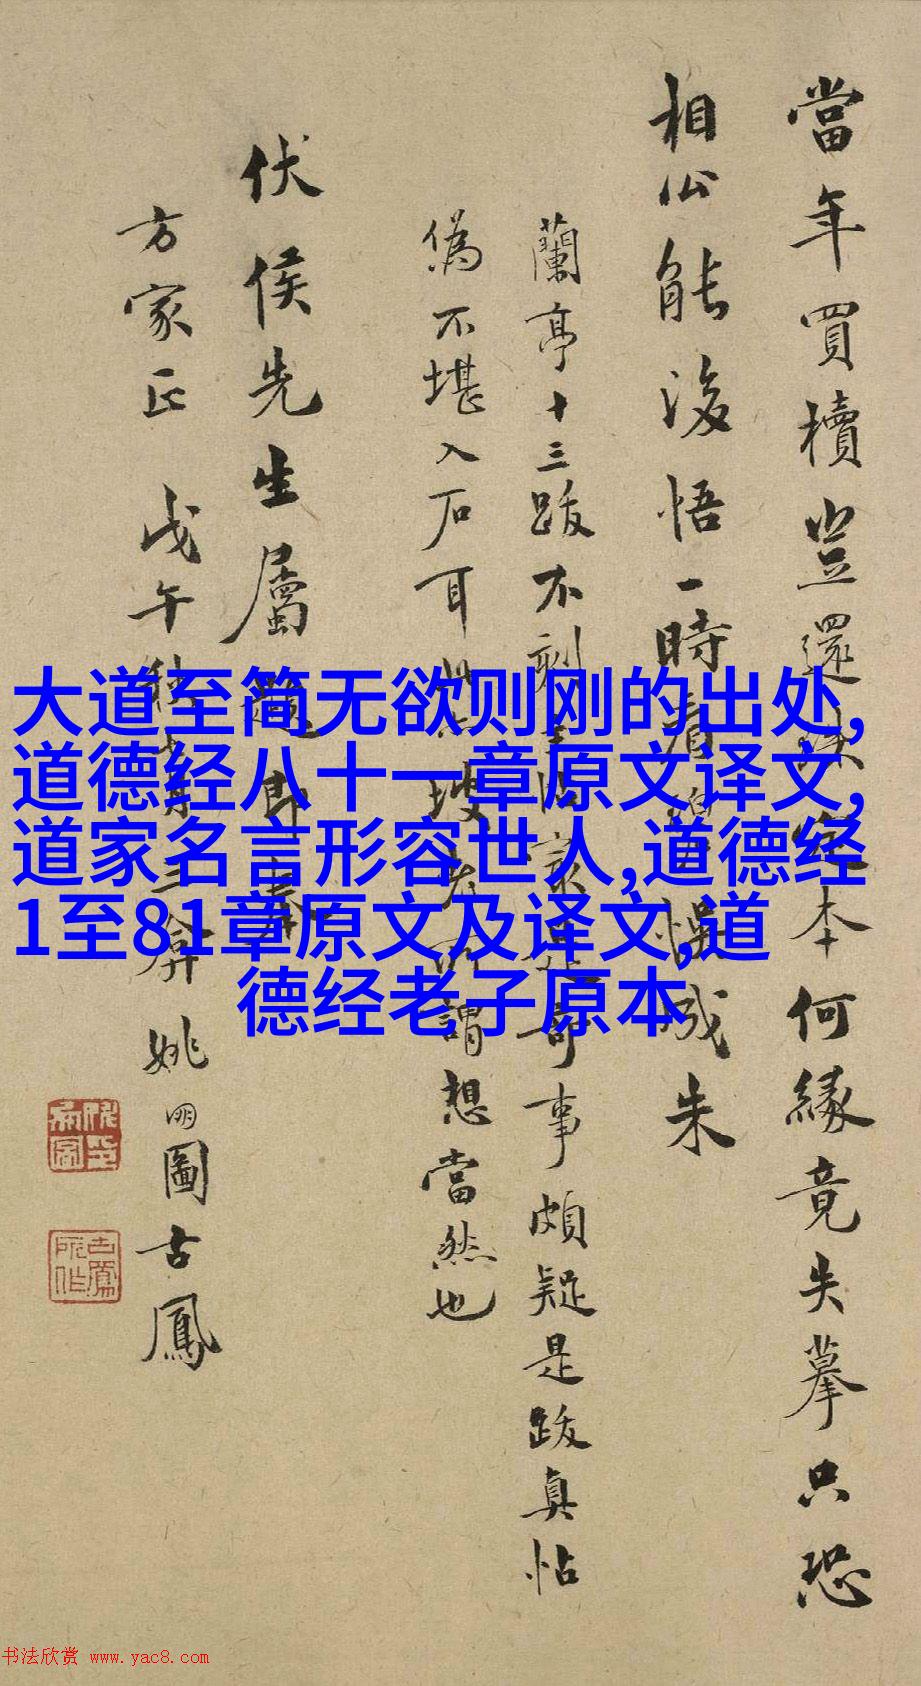 當年買櫝豈還珠定本何緣竟失摹只恐
相公能後悟一時看碧誤成朱
蘭亭十三跋不刻
事頗疑是跋真帖
偽不堪入石耳
謂想當然也
伏侯先生屬題即奉
方家正 戊午秋
姚明圖古鳳
大道至简无欲则刚的出处,
道德经八十一章原文译文,
道家名言形容世人,道德经
1至81章原文及译文,道
德经老子原本
书法欣赏 www.yac8.com